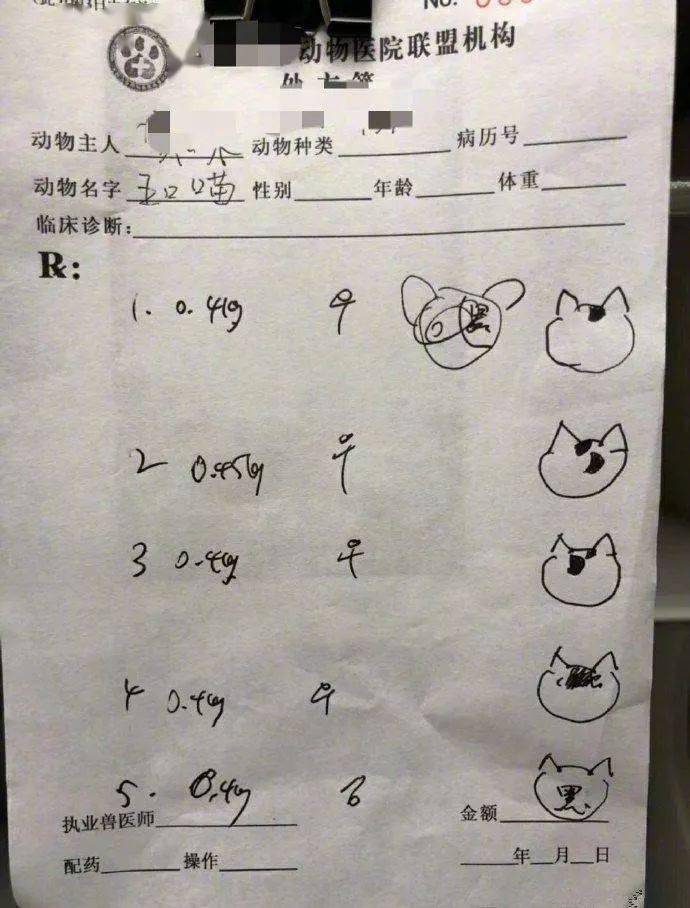 No.
动物医院联盟机构
处方笺
动物主人 动物种类 病历号
动物名字 五口喵 性别 年龄 体重
临床诊断:
R:
1. 0.4kg ♀ 黑
2 0.45kg ♀
3 0.4kg ♀
4 0.4kg ♀
5. 0.4kg 黑
执业兽医师 金额
配药 操作 年 月 日